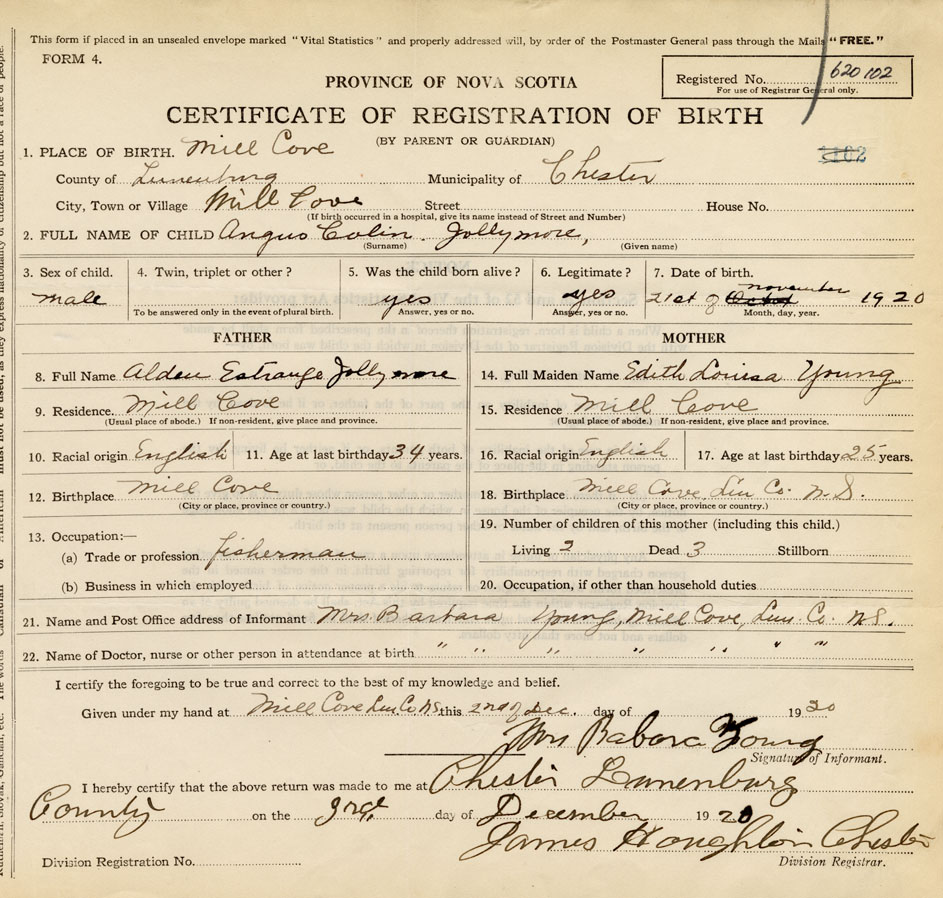 This form if placed in an unsealed envelope marked "Vital Statistics" and properly addressed will, by order of the Postmaster General pass through the Mails "FREE."
FORM 4.
Registered No. 620102
For use of Registrar General only.
PROVINCE OF NOVA SCOTIA
CERTIFICATE OF REGISTRATION OF BIRTH
(BY PARENT OR GUARDIAN)
1. PLACE OF BIRTH. Mill Cove
County of Lunenburg Municipality of Chester
City, Town or Village Mill Cove Street House No.
(If birth occurred in a hospital, give its name instead of Street and Number)
2. FULL NAME OF CHILD Angus Colin Jollymore,
(Surname) (Given name)
3. Sex of child. 4. Twin, triplet or other? 5. Was the child born alive? 6. Legitimate? 7. Date of birth.
male yes yes 21st of november 1920
To be answered only in the event of plural birth. Answer, yes or no. Answer, yes or no. Month, day, year.
FATHER MOTHER
8. Full Name Alden Estrange Jollymore 14. Full Maiden Name Edith Louisa Young
9. Residence. Mill Cove 15. Residence Mill Cove
(Usual place of abode.) If non-resident, give place and province. (Usual place of abode.) If non-resident, give place and province.
10. Racial origin English 11. Age at last birthday 34 years. 16. Racial origin English 17. Age at last birthday 25 years.
12. Birthplace Mill Cove 18. Birthplace Mill Cove, Lun Co. N.S.
(City or place, province or country.) (City or place, province or country.)
13. Occupation:— 19. Number of children of this mother (including this child.)
(a) Trade or profession fisherman Living 2 Dead 3 Stillborn
(b) Business in which employed 20. Occupation, if other than household duties
21. Name and Post Office address of Informant Mrs Barbara Young, Mill Cove, Lun. Co. N.S.
22. Name of Doctor, nurse or other person in attendance at birth " " " " " " "
I certify the foregoing to be true and correct to the best of my knowledge and belief.
Given under my hand at Mill Cove Lun. Co. N.S. this 2nd of Dec. day of 1920
Mrs Babora Young
Signature of Informant.
I hereby certify that the above return was made to me at Chester Lunenburg
County on the 3rd day of December 1920
James Houghton Chester
Division Registration No. Division Registrar.